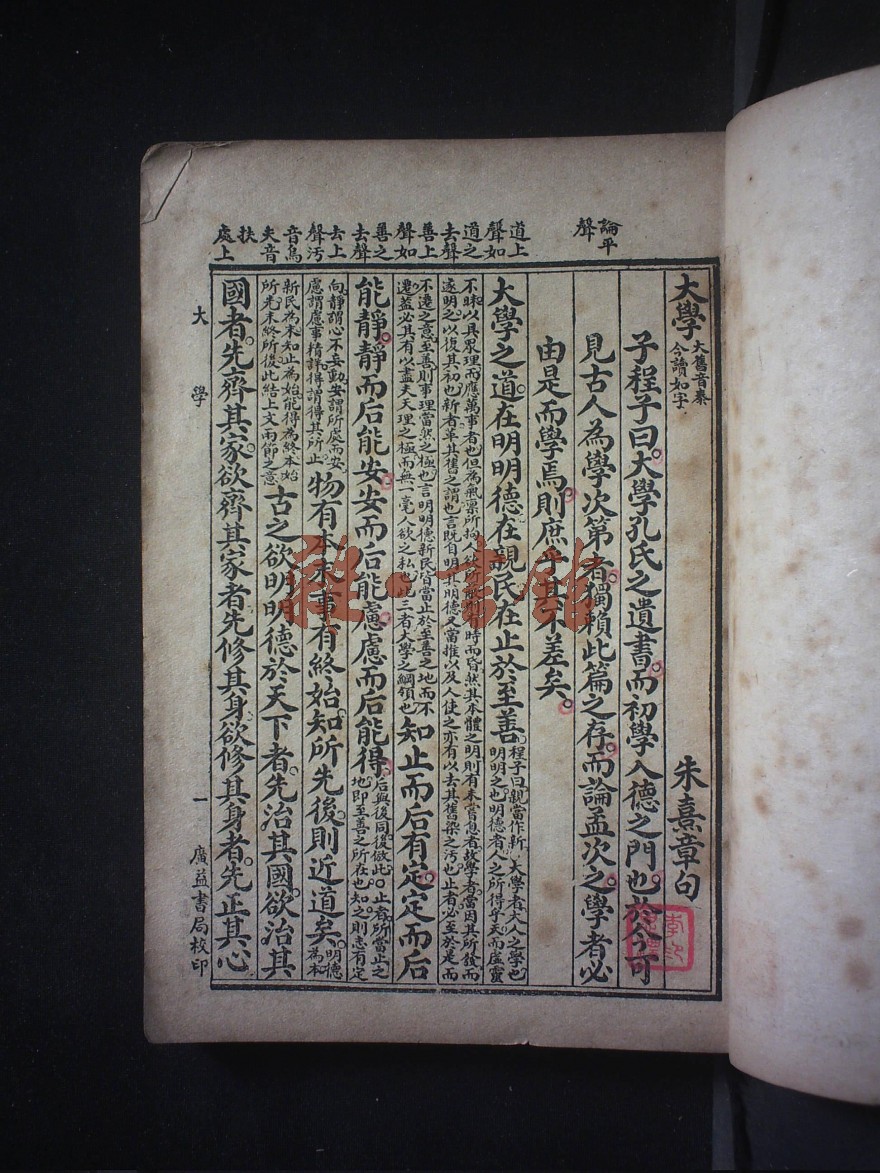 論平
聲
道上
聲如
道之
去聲
善上
聲如
善之
去聲
去上
聲汚
音烏
夫音
扶
處上
大學 大舊音泰今讀如字 朱熹章句
子程子曰。大學孔氏之遺書。而初學入德之門也。於今可
見古人為學次第者。獨賴此篇之存。而論孟次之。學者必
由是而學焉。則庶乎其不差矣。
大學之道。在明明德。在親民。在止於至善。程子曰親當作新。大學者大人之學也
明明之也明德者人之所得乎天而虛靈
不昧以具眾理而應萬事者也但為氣稟所拘人欲所蔽則有時而昏然其本體之明則有未嘗息者故學者當因其所發而
遂明之以復其初也新者革其舊之謂也言既自明其明德又當推以及人使之亦有以去其舊染之汚也止者必至於是而
不遷之意至善則事理當然之極也言明明德新民皆當止於至善之地而不
遷蓋必其有以盡夫天理之極而無一毫人欲之私也此三者大學之綱領也
知止而后有定。定而后
能靜。靜而后能安。安而后能慮。慮而后能得。后與後同後倣此。止者所當止之
地即至善之所在也知之則志有定
向靜謂心不妄動安謂所處而安
慮謂處事精詳得謂得其所止
物有本末。事有終始。知所先後。則近道矣。明德為本
新民為末知止為始能得為終本始
所先末終所後此結上文兩節之意
古之欲明明德於天下者。先治其國。欲治其
國者。先齊其家。欲齊其家者。先修其身。欲修其身者。先正其心
大學 一 廣益書局校印